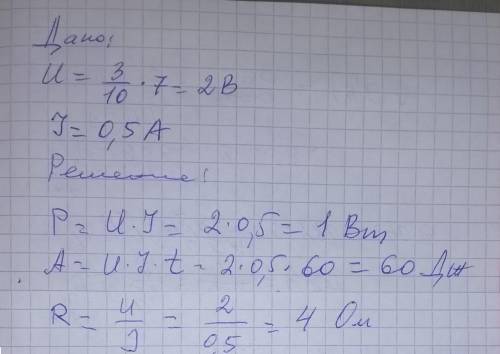 Дано:
U = 3/10 · 7 = 2В
I = 0,5 А
Решение:
P = U · I = 2 · 0,5 = 1 Вт
A = U · I · t = 2 · 0,5 · 60 = 60 Дж
R = U/I = 2/0,5 = 4 Ом